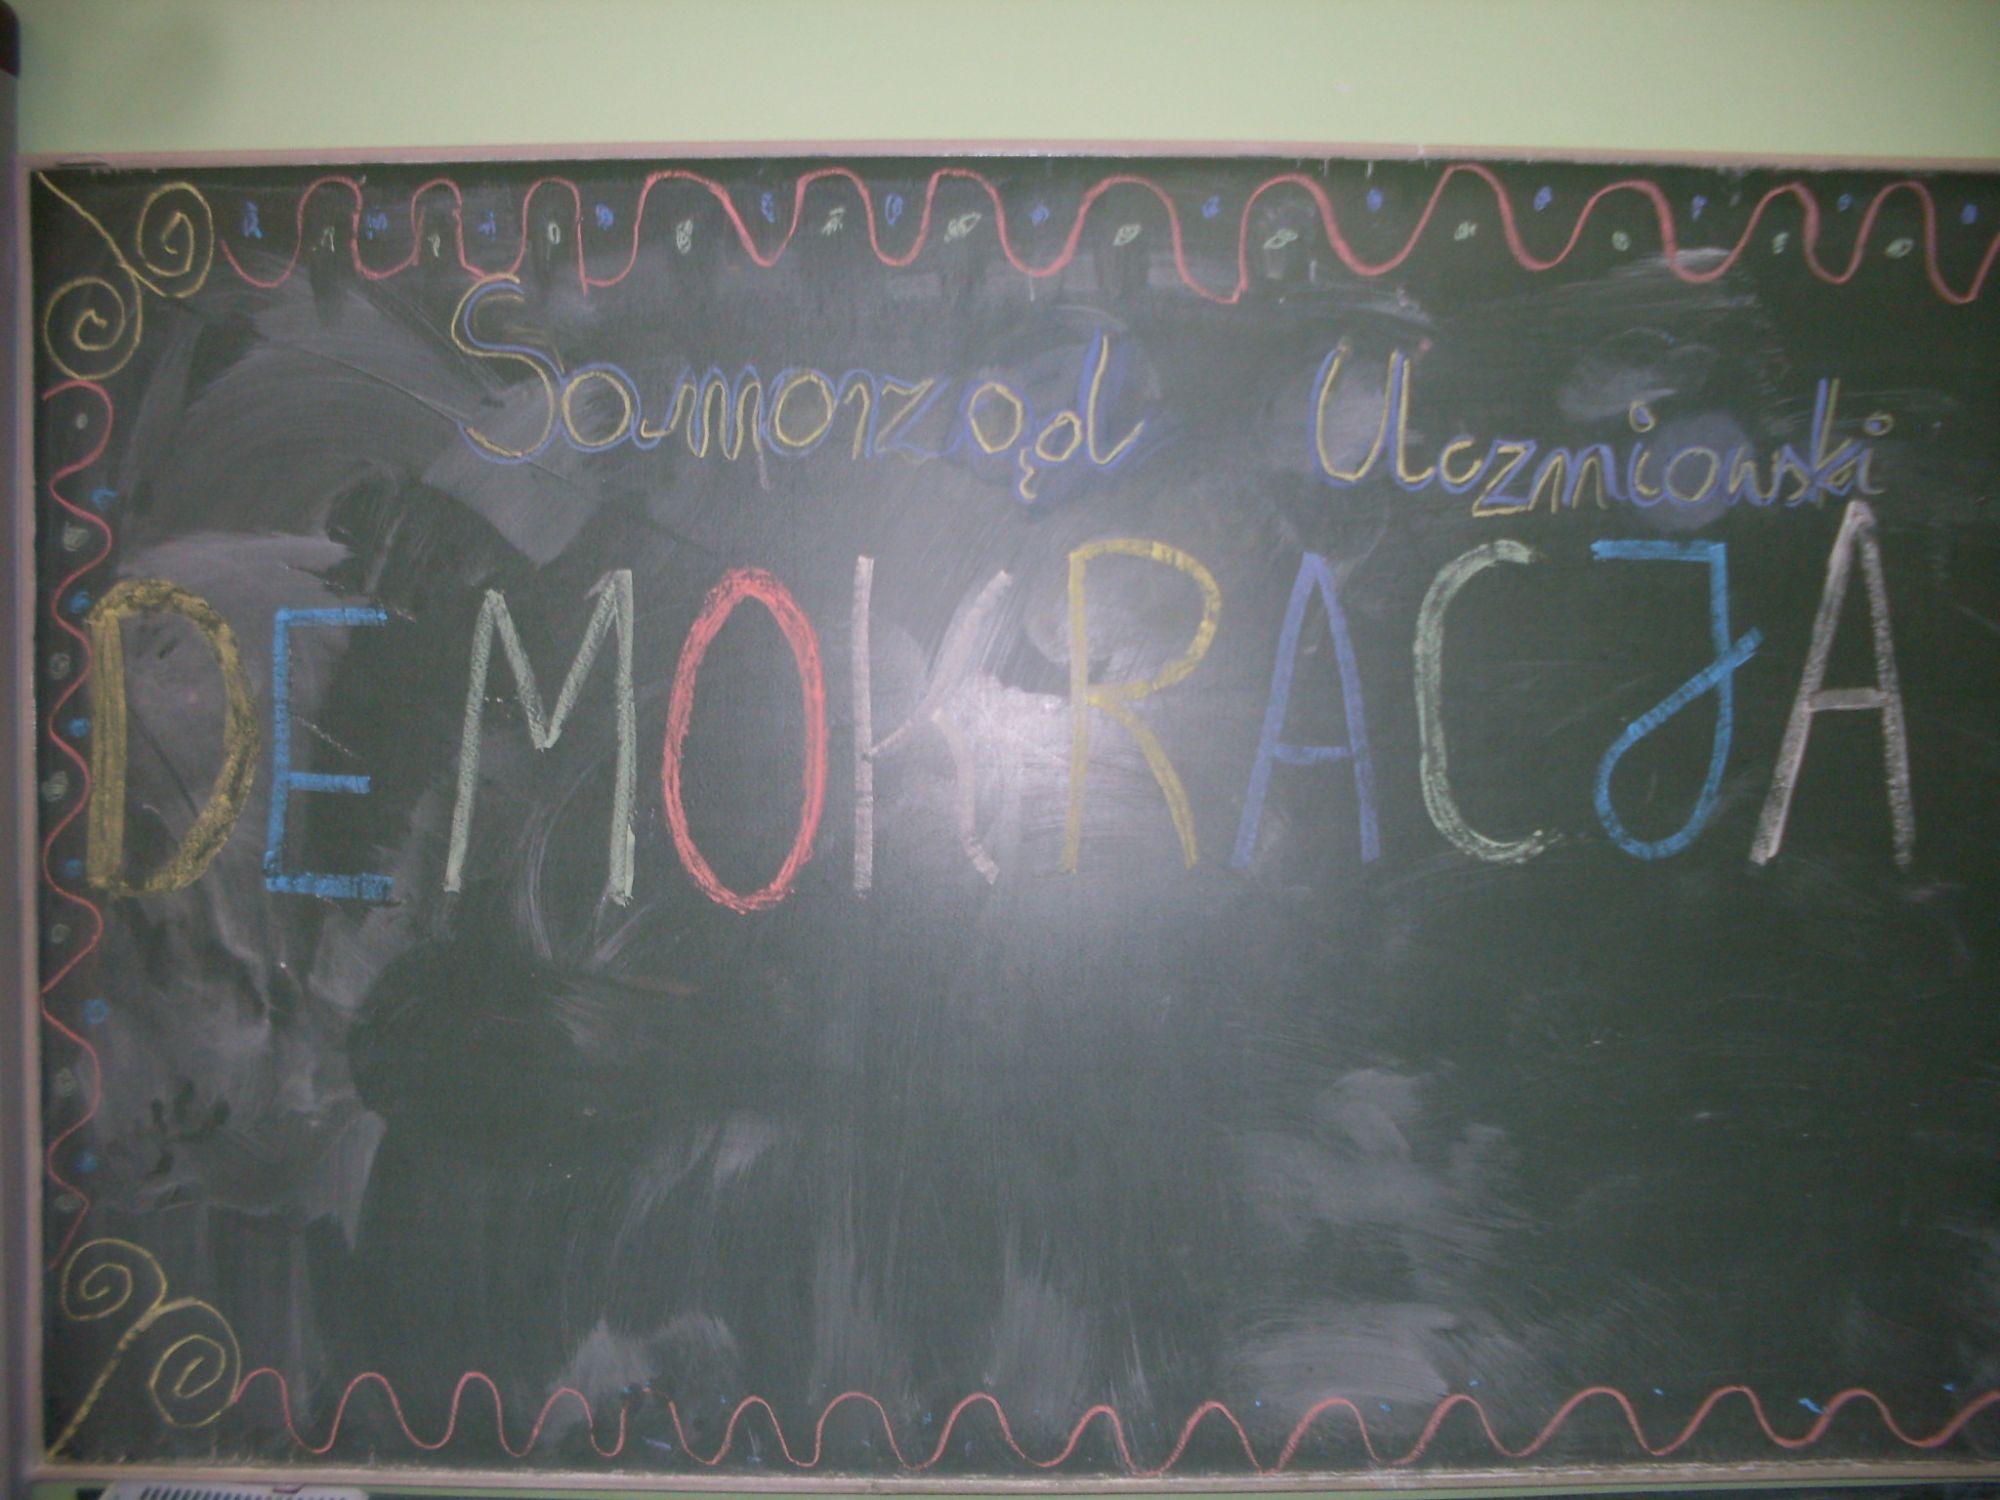 Samorząd Uczniowski
DEMOKRACJA